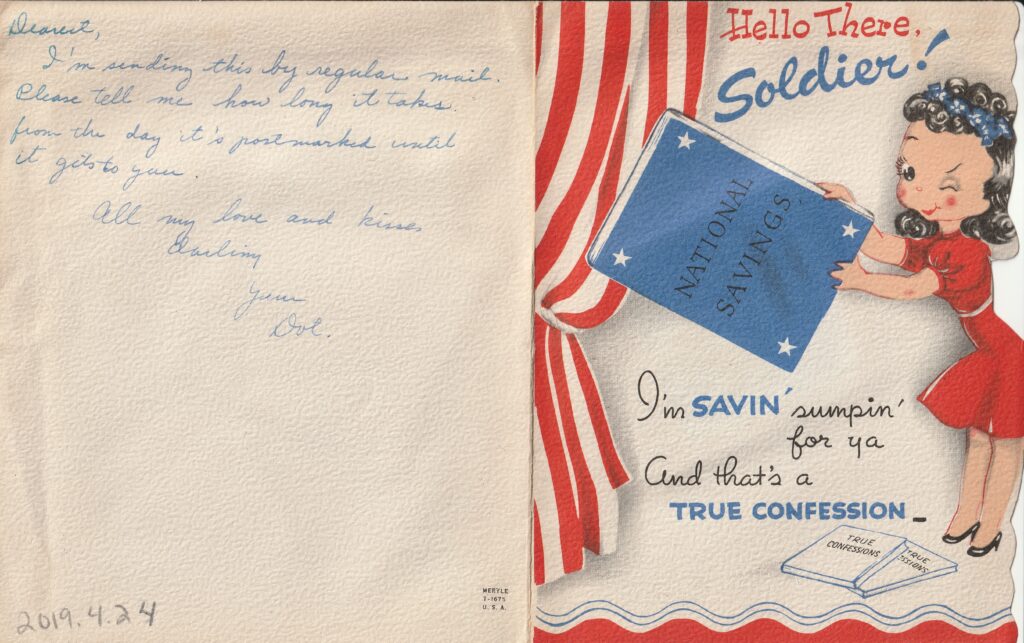 Dearest,
I'm sending this by regular mail.
Please tell me how long it takes
from the day it's postmarked until
it gets to you.
All my love and kisses
Darling
Your
Dot.
2019.4.24
MERYLE
U.S.A.
Hello There,
Soldier!
NATIONAL
SAVINGS
I'm SAVIN' sumpin'
for ya
And that's a
TRUE CONFESSION_
TRUE
CONFESSIONS
TRUE